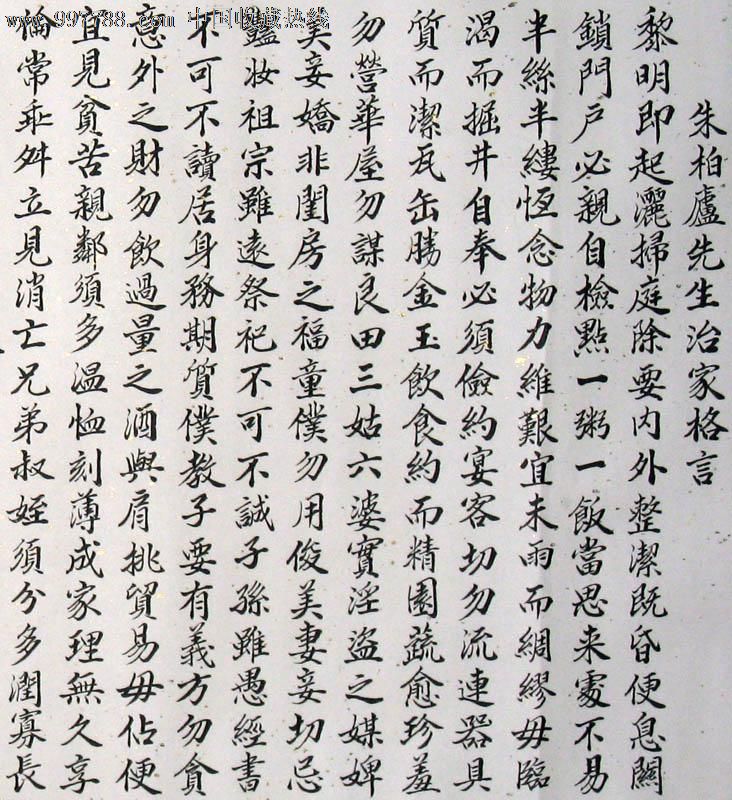 www.997788.com 中国收藏热线
朱柏廬先生治家格言
黎明即起灑掃庭除要内外整潔既昏便息關
鎖門戶必親自檢點一粥一飯當思来處不易
半絲半縷恆念物力維艱宜未雨而綢繆毋臨
渴而掘井自奉必須儉約宴客切勿流連器具
質而潔瓦缶勝金玉飲食約而精園蔬愈珍羞
勿營華屋勿謀良田三姑六婆實淫盜之媒婢
美妾嬌非閨房之福童僕勿用俊美妻妾切忌
豔妝祖宗雖遠祭祀不可不誠子孫雖愚經書
不可不讀居身務期質僕教子要有義方勿貪
意外之財勿飲過量之酒與肩挑貿易毋佔便
宜見貧苦親鄰須多温恤刻薄成家理無久享
倫常乖舛立見消亡兄弟叔姪須分多潤寡長